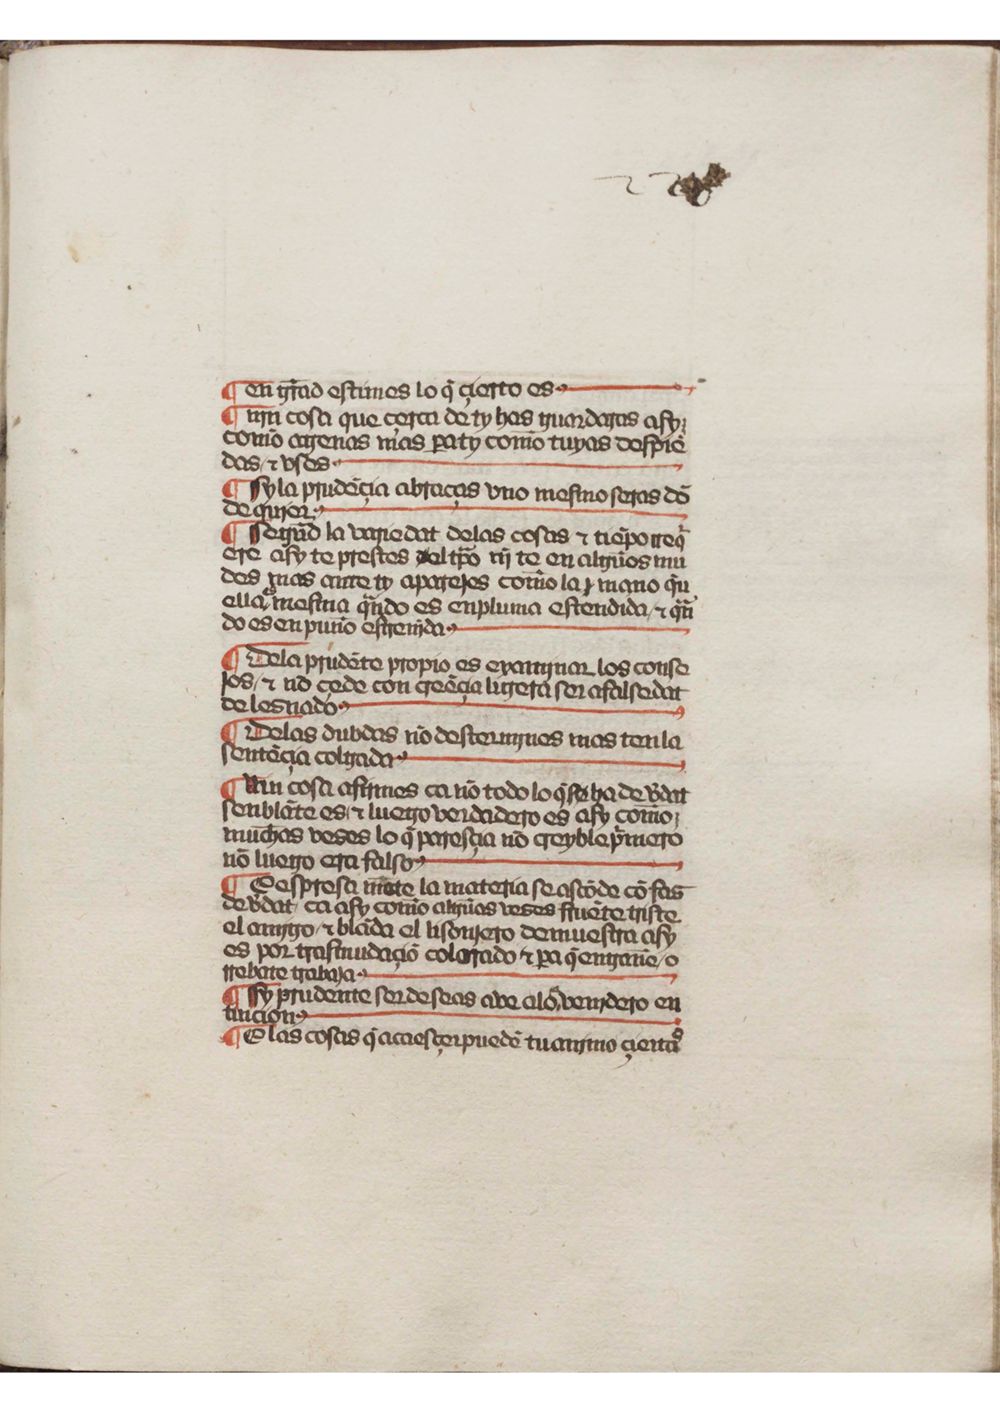 ¶ en gr̃ad estimes lo q̃ çierto es
¶ nin cosa que çerca de ty has guardaras asy
como agenas mas pa ty como tuyas despiẽ
das / ⁊ vses
¶ Sy la prudẽçia abraças vno mesmo seras dõ
de quier
¶ Segũd la variedat delas cosas ⁊ tiẽpo rreq̃
ere asy te prestes al tp̃o nj̃ te en algũos mu
des mas ante ty aparejes como la mano q̃
ella mesma q̃ndo es en pluma estendida / ⁊ q̃n
do es en puño estrenjda
¶ Dela prudẽte propio es examinar los conse
jos / ⁊ no çede con creẽçia ligera ser a falsedat
deleznado
¶ Delas dubdas nõ determjnes mas ten la
sentẽçia colgada
¶ Nin cosa afirmes ca nõ todo lo q̃ ha de ṽdat
senblãte es / ⁊ luego verdadero es asy como
muchas veses lo q̃ paresçia nõ creyble p̃mero
nõ luego era falso
¶ E espresa mẽte la materia se ascõde cõ fas
de ṽdat / ca asy como algũas veses fruẽte triste
el amigo / ⁊ blãda el lisonjero demuestra asy
es por trasmudaçiõ colorado ⁊ pa q̃ engañe / o
rrebate trabaja
¶ Sy prudente ser deseas ave alo venjdero en
tinçion
¶ E las cosas q̃ acaesçer puedẽ tu animo çierta